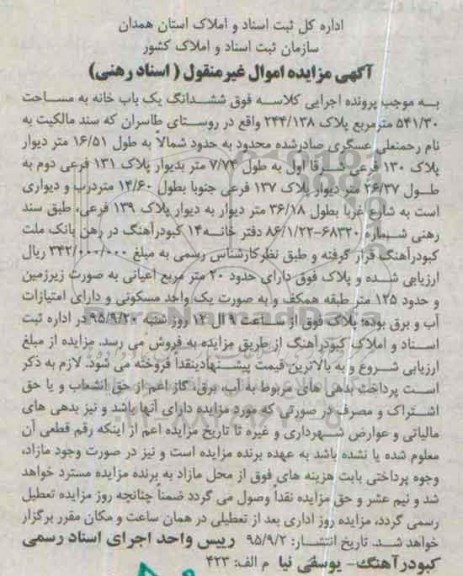 اداره کل ثبت اسناد و املاک استان همدان
سازمان ثبت اسناد و املاک کشور
آگهی مزایده اموال غیرمنقول ( اسناد رهنی)
به موجب پرونده اجرایی کلاسه فوق ششدانگ یک باب خانه به مساحت
۵۴۱/۳۰ مترمربع پلاک ۲۴۴/۱۳۸ واقع در روستای طاسران که سند مالکیت به
نام رحمنعلی عسگری صادرشده محدود به حدود شمالاً به طول ۱۶/۵۱ متر دیوار
پلاک ۱۳۰ فرعی شرقاً اول به طول ۷/۷۴ متر بدیوار پلاک ۱۳۱ فرعی دوم به
طول ۲۶/۳۷ متر دیوار پلاک ۱۳۷ فرعی جنوبا بطول ۱۴/۶۰ متردرب و دیواری
است به شارع غربا بطول ۳۶/۱۸ متر دیوار به دیوار پلاک ۱۳۹ فرعی، طبق سند
رهنی شماره ۶۸۳۲۰-۸۶/۱/۲۲ دفتر خانه ۱۴ کبودرآهنگ در رهن بانک ملت
کبودرآهنگ قرار گرفته و طبق نظرکارشناس رسمی به مبلغ ۳۴۲/۰۰۰/۰۰۰ ریال
ارزیابی شده و پلاک فوق دارای حدود ۲۰ متر مربع اعیانی به صورت زیرزمین
و حدود ۱۲۵ متر طبقه همکف و به صورت یک واحد مسکونی و دارای امتیازات
آب و برق بوده پلاک فوق از ساعت ۹ ال ۱۲ روز شنبه ۹۵/۹/۲۰ در اداره ثبت
اسناد و املاک کبودرآهنگ از طریق مزایده به فروش می رسد. مزایده از مبلغ
ارزیابی شروع و به بالاترین قیمت پیشنهادینقداً فروخته می شود. لازم به ذکر
است پرداخت بدهی های مربوط به آب، برق، گاز اعم از حق انشعاب و یا حق
اشتراک و مصرف در صورتی که مورد مزایده دارای آنها باشد و نیز بدهی های
مالیاتی و عوارض شهرداری و غیره تا تاریخ مزایده اعم از اینکه رقم قطعی آن
معلوم شده یا نشده باشد به عهده برنده مزایده است و نیز در صورت وجود مازاد،
وجوه پرداختی بابت هزینه های فوق از محل مازاد به برنده مزایده مسترد خواهد
شد و نیم عشر و حق مزایده نقداً وصول می گردد ضمناً چنانچه روز مزایده تعطیل
رسمی گردد، مزایده روز اداری بعد از تعطیلی در همان ساعت و مکان مقرر برگزار
خواهد شد. تاریخ انتشار: ۹۵/۹/۲ رییس واحد اجرای اسناد رسمی
کبودرآهنگ- یوسفی نیا م الف: ۴۲۳